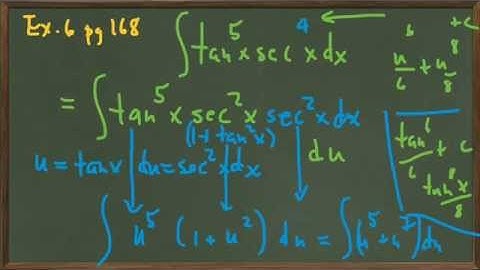 Ex. 6 pg 168
∫tan⁵x sec⁴x dx
= ∫tan⁵x sec²x sec²x dx
(1+tan²x)
u = tanx du = sec²x dx du
∫ u⁵ (1+u²) du = ∫(u⁵+u⁷)du
6 + c
u/6 + u⁸/8
tan⁶/6 + c
tan⁸x/8